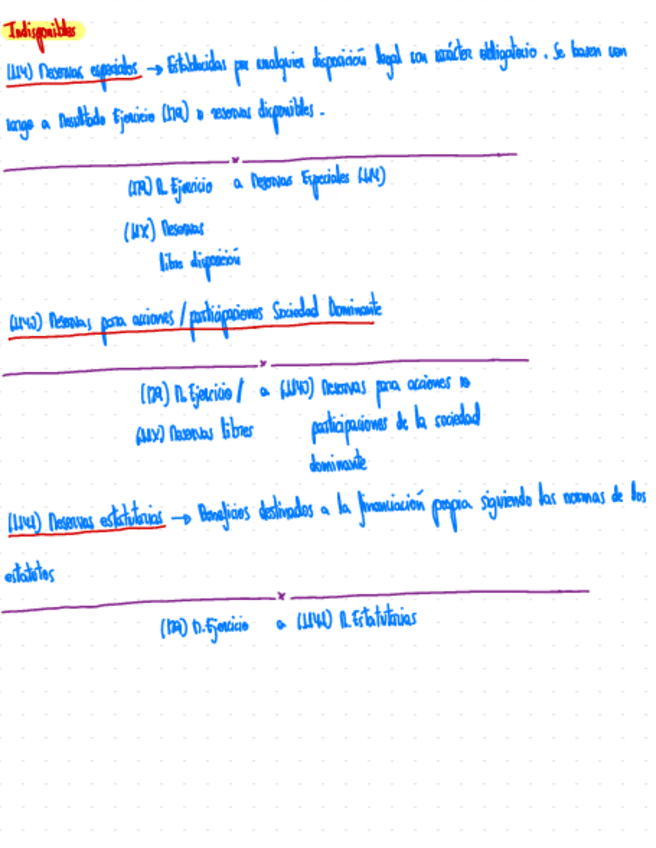 Indisponibles
(114) Reservas especiales → Establecidas por cualquier disposición legal con carácter obligatorio. Se hacen con
cargo a Resultado Ejercicio (129) o reservas disponibles.
(129) R. Ejercicio a Reservas Especiales (114)
(11X) Reservas
libre disposición
(1140) Reservas para acciones / participaciones Sociedad Dominante
(129) R. Ejercicio / a (1140) Reservas para acciones o
(11X) Reservas libres participaciones de la sociedad
dominante
(1141) Reservas estatutarias → Beneficios destinados a la financiación propia siguiendo las normas de los
estatutos
(129) R. Ejercicio a (1141) R. Estatutarias